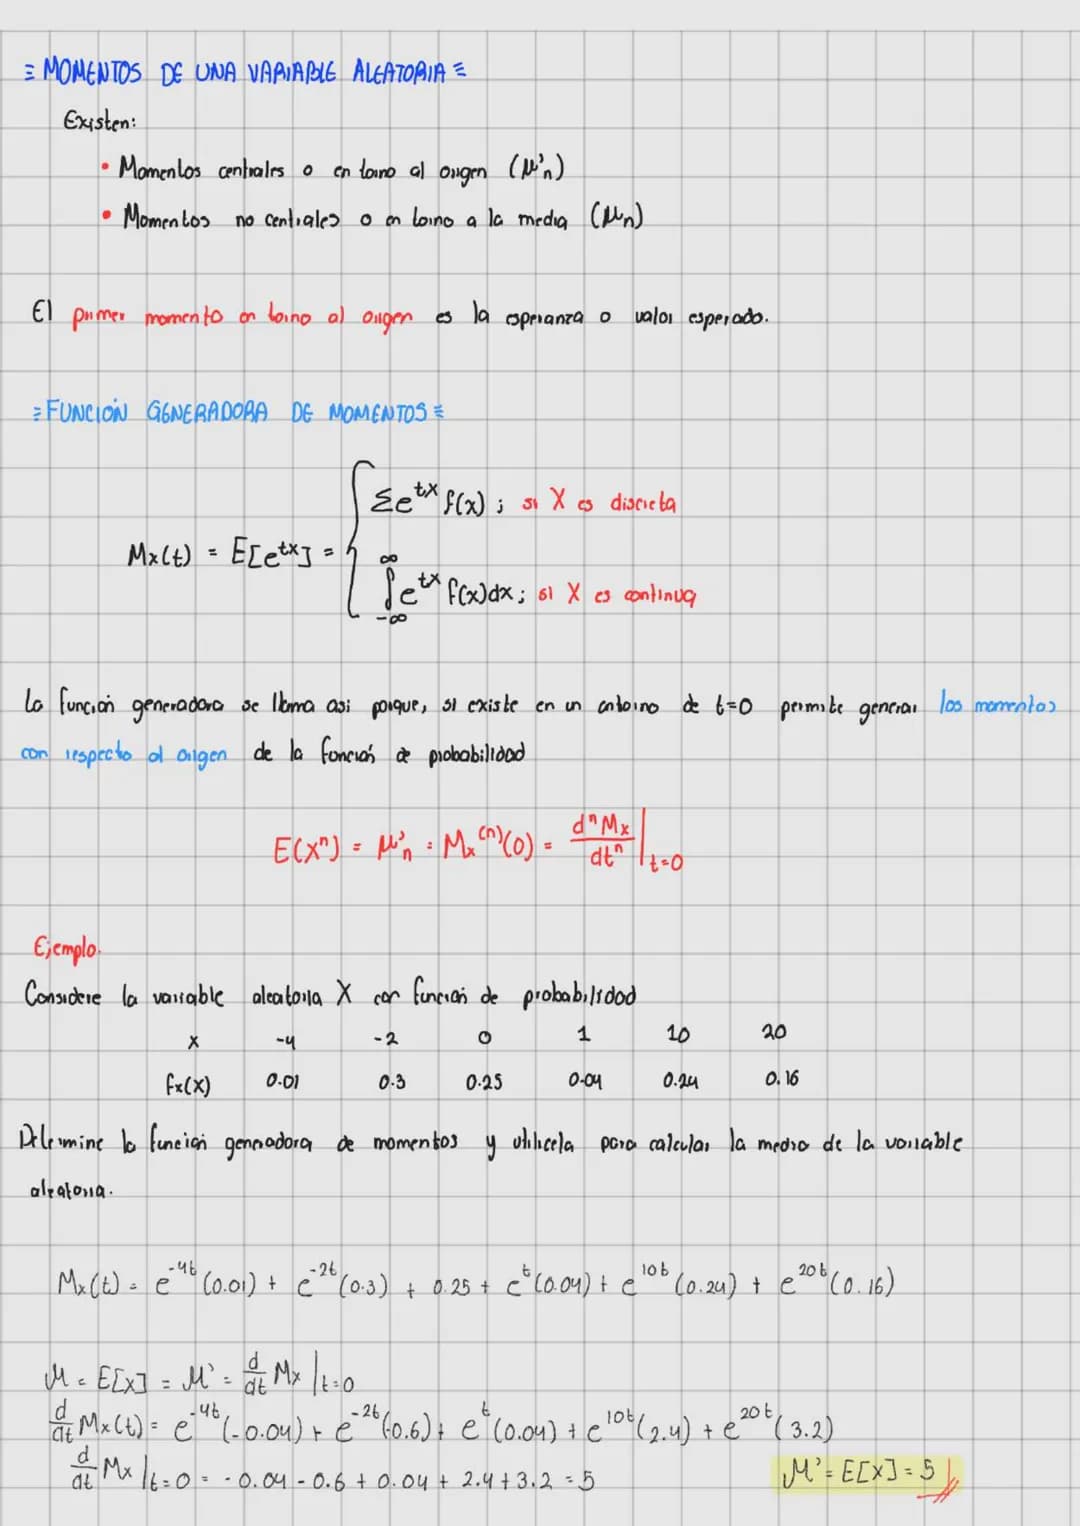 = MOMENTOS DE UNA VARIABLE ALEATORIA =
Existen:
• Momentos centrales o en torno al origen (μ'n)
• Momentos no centrales o en torno a la media (μn)
El primer momento en torno al origen es la esperanza o valor esperado.
= FUNCIÓN GENERADORA DE MOMENTOS =
Σe^tx f(x) ; si X es discreta
Mx(t) = E[e^tx] =
∫_-∞^∞ e^tx f(x)dx ; si X es continua
La función generadora se llama asi porque, si existe en un entorno de t=0 permite generar los momentos
con respecto al origen de la función de probabilidad
E(X^n) = μ'n = Mx^(n)(0) = d^n Mx / dt^n |t=0
Ejemplo.
Considere la variable aleatoria X con función de probabilidad
x -4 -2 0 1 10 20
fx(X) 0.01 0.3 0.25 0.04 0.24 0.16
Determine la función generadora de momentos y utilicela para calcular la media de la variable
aleatoria.
Mx(t) = e^-4t (0.01) + e^-2t (0.3) + 0.25 + e^t (0.04) + e^10t (0.24) + e^20t (0.16)
μ = E[X] = μ' = d/dt Mx |t=0
d/dt Mx(t) = e^-4t (-0.04) + e^-2t (-0.6) + e^t (0.04) + e^10t (2.4) + e^20t (3.2)
d/dt Mx |t=0 = -0.04 - 0.6 + 0.04 + 2.4 + 3.2 = 5
μ' = E[X] = 5